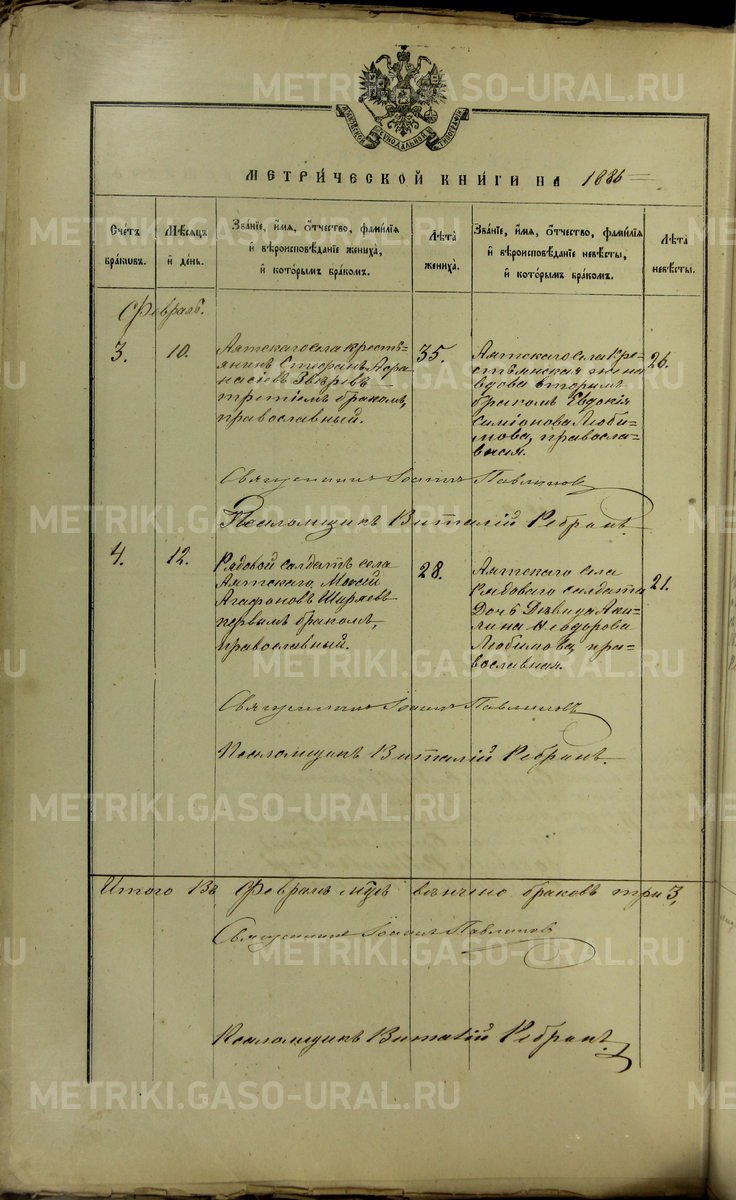 МОСКОВСКОЙ СѴНОДАЛЬНОЙ ТИПОГРАФІИ
МЕТРИ́ЧЕСКОЙ КНИ́ГИ НА 1886
Сче́тъ
бра́ковъ.
Мѣ́сяцъ
и҆ де́нь.
Зва́нїе, и҆́мя, ѻ҆́тчество, фами́лїя
и҆ вѣроисповѣ́данїе жениха̀,
и҆ кото́рымъ бра́комъ.
Лѣ́та
жениха̀.
Зва́нїе, и҆́мя, ѻ҆́тчество, фами́лїя
и҆ вѣроисповѣ́данїе невѣ́сты,
и҆ кото́рымъ бра́комъ.
Лѣ́та
невѣ́сты.
Февраль.
3.
10.
Аятскаго села кресть-
янинъ Стефанъ Афа
насіевъ Звѣревъ
третіемъ бракомъ,
православный.
35.
Аятскаго села кре-
стьянская жена
вдова вторымъ
бракомъ Евдокія
Симіонова Люби-
мова, правосла-
вная.
26.
Священникъ Іоаннъ Павлиновъ
Псаломщикъ Виталій Ребринъ.
4.
12.
Рядовой солдатъ села
Аятскаго, Моксій
Агафоновъ Ширяевъ
первымъ бракомъ,
православный.
28.
Аятскаго села
рядоваго солдата
дочь дѣвица Аки-
лина Ѳеодорова
Любимова, пра-
вославная.
21.
Священникъ Іоаннъ Павлиновъ
Псаломщикъ Виталій Ребринъ.
Итого въ Февралѣ мцѣ вѣнчано браковъ три 3,
Священникъ Іоаннъ Павлиновъ
Псаломщикъ Виталій Ребринъ.
METRIKI.GASO-URAL.RU